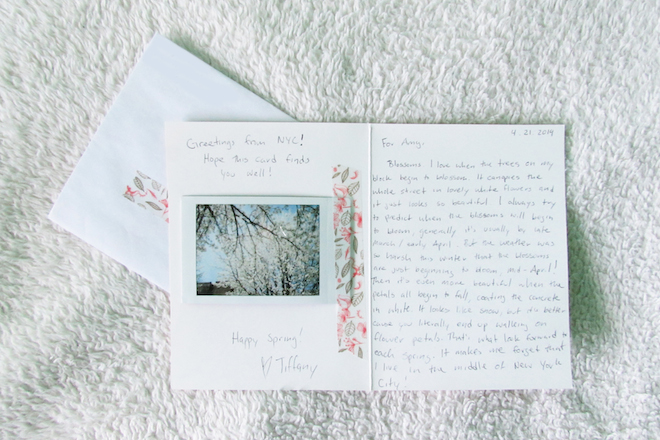 Greetings from NYC!
Hope this card finds
you well!
Happy Spring!
Tiffany
4.21.2019
For Amy,
Blossoms. I love when the trees on my
block begin to blossom. It canopies the
whole street in lovely white flowers and
it just looks so beautiful. I always try
to predict when the blossoms will begin
to bloom, generally it's usually by late
March / early April. But the weather was
so harsh this winter that the blossoms
are just beginning to bloom, mid-April!
Then it's even more beautiful when the
petals all begin to fall, coating the concrete
in white. It looks like snow, but it's better
cause you literally end up walking on
flower petals. That's what I look forward to
each spring. It makes me forget that
I live in the middle of New York
City!